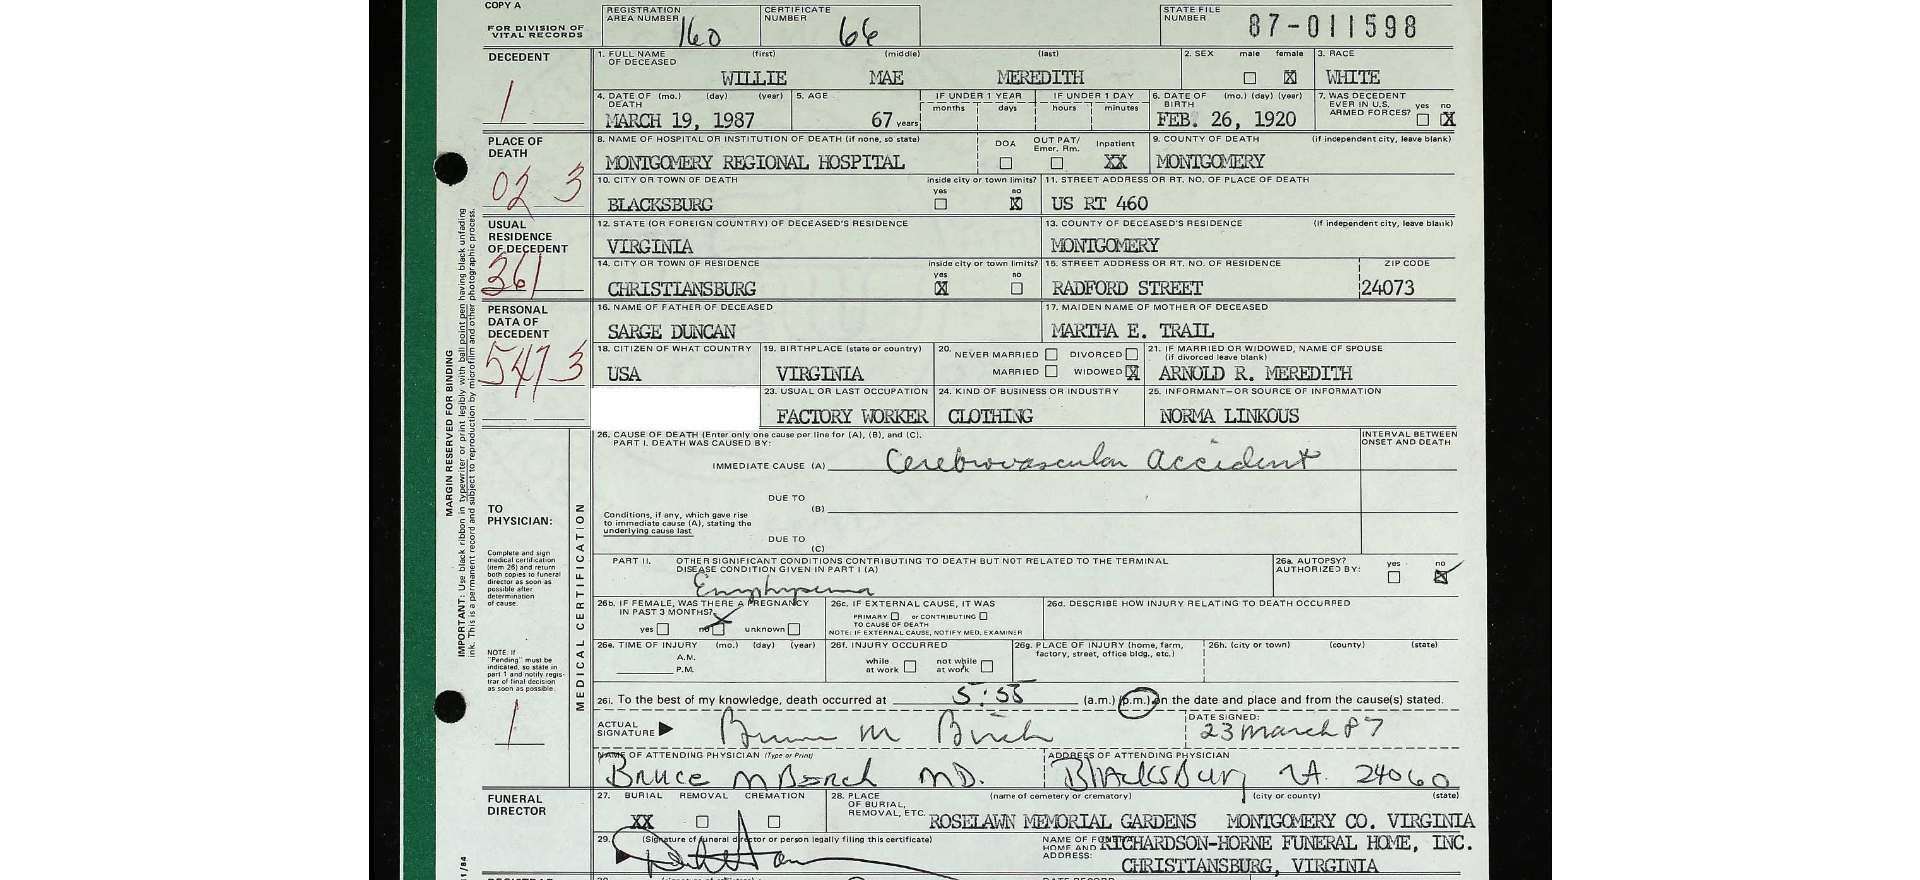 COPY A
FOR DIVISION OF VITAL RECORDS
REGISTRATION AREA NUMBER 160
CERTIFICATE NUMBER 66
STATE FILE NUMBER 87-011598
DECEDENT
1
1. FULL NAME OF DECEASED (first) (middle) (last)
WILLIE MAE MEREDITH
2. SEX male female X
3. RACE
WHITE
4. DATE OF DEATH (mo.) (day) (year)
MARCH 19, 1987
5. AGE
67 years
IF UNDER 1 YEAR months days
IF UNDER 1 DAY hours minutes
6. DATE OF BIRTH (mo.) (day) (year)
FEB. 26, 1920
7. WAS DECEDENT EVER IN U.S. ARMED FORCES? yes no X
PLACE OF DEATH
02 3
8. NAME OF HOSPITAL OR INSTITUTION OF DEATH (if none, so state)
MONTGOMERY REGIONAL HOSPITAL
DOA OUT PAT/ Emer. Rm. Inpatient XX
9. COUNTY OF DEATH (if independent city, leave blank)
MONTGOMERY
10. CITY OR TOWN OF DEATH
BLACKSBURG
inside city or town limits? yes no X
11. STREET ADDRESS OR RT. NO. OF PLACE OF DEATH
US RT 460
USUAL RESIDENCE OF DECEDENT
361
12. STATE (OR FOREIGN COUNTRY) OF DECEASED'S RESIDENCE
VIRGINIA
13. COUNTY OF DECEASED'S RESIDENCE (if independent city, leave blank)
MONTGOMERY
14. CITY OR TOWN OF RESIDENCE
CHRISTIANSBURG
inside city or town limits? yes X no
15. STREET ADDRESS OR RT. NO. OF RESIDENCE
RADFORD STREET
ZIP CODE
24073
PERSONAL DATA OF DECEDENT
547 3
16. NAME OF FATHER OF DECEASED
SARGE DUNCAN
17. MAIDEN NAME OF MOTHER OF DECEASED
MARTHA E. TRAIL
18. CITIZEN OF WHAT COUNTRY
USA
19. BIRTHPLACE (state or country)
VIRGINIA
20. NEVER MARRIED DIVORCED
MARRIED WIDOWED X
21. IF MARRIED OR WIDOWED, NAME OF SPOUSE (if divorced leave blank)
ARNOLD R. MEREDITH
23. USUAL OR LAST OCCUPATION
FACTORY WORKER
24. KIND OF BUSINESS OR INDUSTRY
CLOTHING
25. INFORMANT—OR SOURCE OF INFORMATION
NORMA LINKOUS
MARGIN RESERVED FOR BINDING
IMPORTANT: Use black ribbon in typewriter or print legibly with ball point pen having black unfading
ink. This is a permanent record and subject to reproduction by microfilm and other photographic process.
MEDICAL CERTIFICATION
TO PHYSICIAN:
Complete and sign medical certification (item 26) and return both copies to funeral director as soon as possible after determination of cause.
NOTE: If "Pending" must be indicated, so state in part 1 and notify registrar of final decision as soon as possible.
1
26. CAUSE OF DEATH (Enter only one cause per line for (A), (B), and (C).
PART I. DEATH WAS CAUSED BY:
INTERVAL BETWEEN ONSET AND DEATH
IMMEDIATE CAUSE (A) Cerebrovascular Accident
DUE TO (B)
Conditions, if any, which gave rise to immediate cause (A), stating the underlying cause last
DUE TO (C)
PART II. OTHER SIGNIFICANT CONDITIONS CONTRIBUTING TO DEATH BUT NOT RELATED TO THE TERMINAL
DISEASE CONDITION GIVEN IN PART I (A)
Emphysema
26a. AUTOPSY? AUTHORIZED BY: yes no X
26b. IF FEMALE, WAS THERE A PREGNANCY IN PAST 3 MONTHS?
yes no X unknown
26c. IF EXTERNAL CAUSE, IT WAS
PRIMARY or CONTRIBUTING
TO CAUSE OF DEATH
NOTE: IF EXTERNAL CAUSE, NOTIFY MED. EXAMINER
26d. DESCRIBE HOW INJURY RELATING TO DEATH OCCURRED
26e. TIME OF INJURY (mo.) (day) (year)
A.M.
P.M.
26f. INJURY OCCURRED
while at work not while at work
26g. PLACE OF INJURY (home, farm, factory, street, office bldg., etc.)
26h. (city or town) (county) (state)
26i. To the best of my knowledge, death occurred at 5:55 (a.m.) (p.m.) on the date and place and from the cause(s) stated.
ACTUAL SIGNATURE Bruce M
DATE SIGNED:
23 March 87
NAME OF ATTENDING PHYSICIAN (Type or Print)
Bruce M MD.
ADDRESS OF ATTENDING PHYSICIAN
Blacksburg VA. 24060
FUNERAL DIRECTOR
27. BURIAL REMOVAL CREMATION
XX
28. PLACE OF BURIAL, REMOVAL, ETC. (name of cemetery or crematory) (city or county) (state)
ROSELAWN MEMORIAL GARDENS MONTGOMERY CO. VIRGINIA
29. (Signature of funeral director or person legally filing this certificate)
NAME OF FUNERAL HOME AND ADDRESS:
RICHARDSON-HORNE FUNERAL HOME, INC.
CHRISTIANSBURG, VIRGINIA